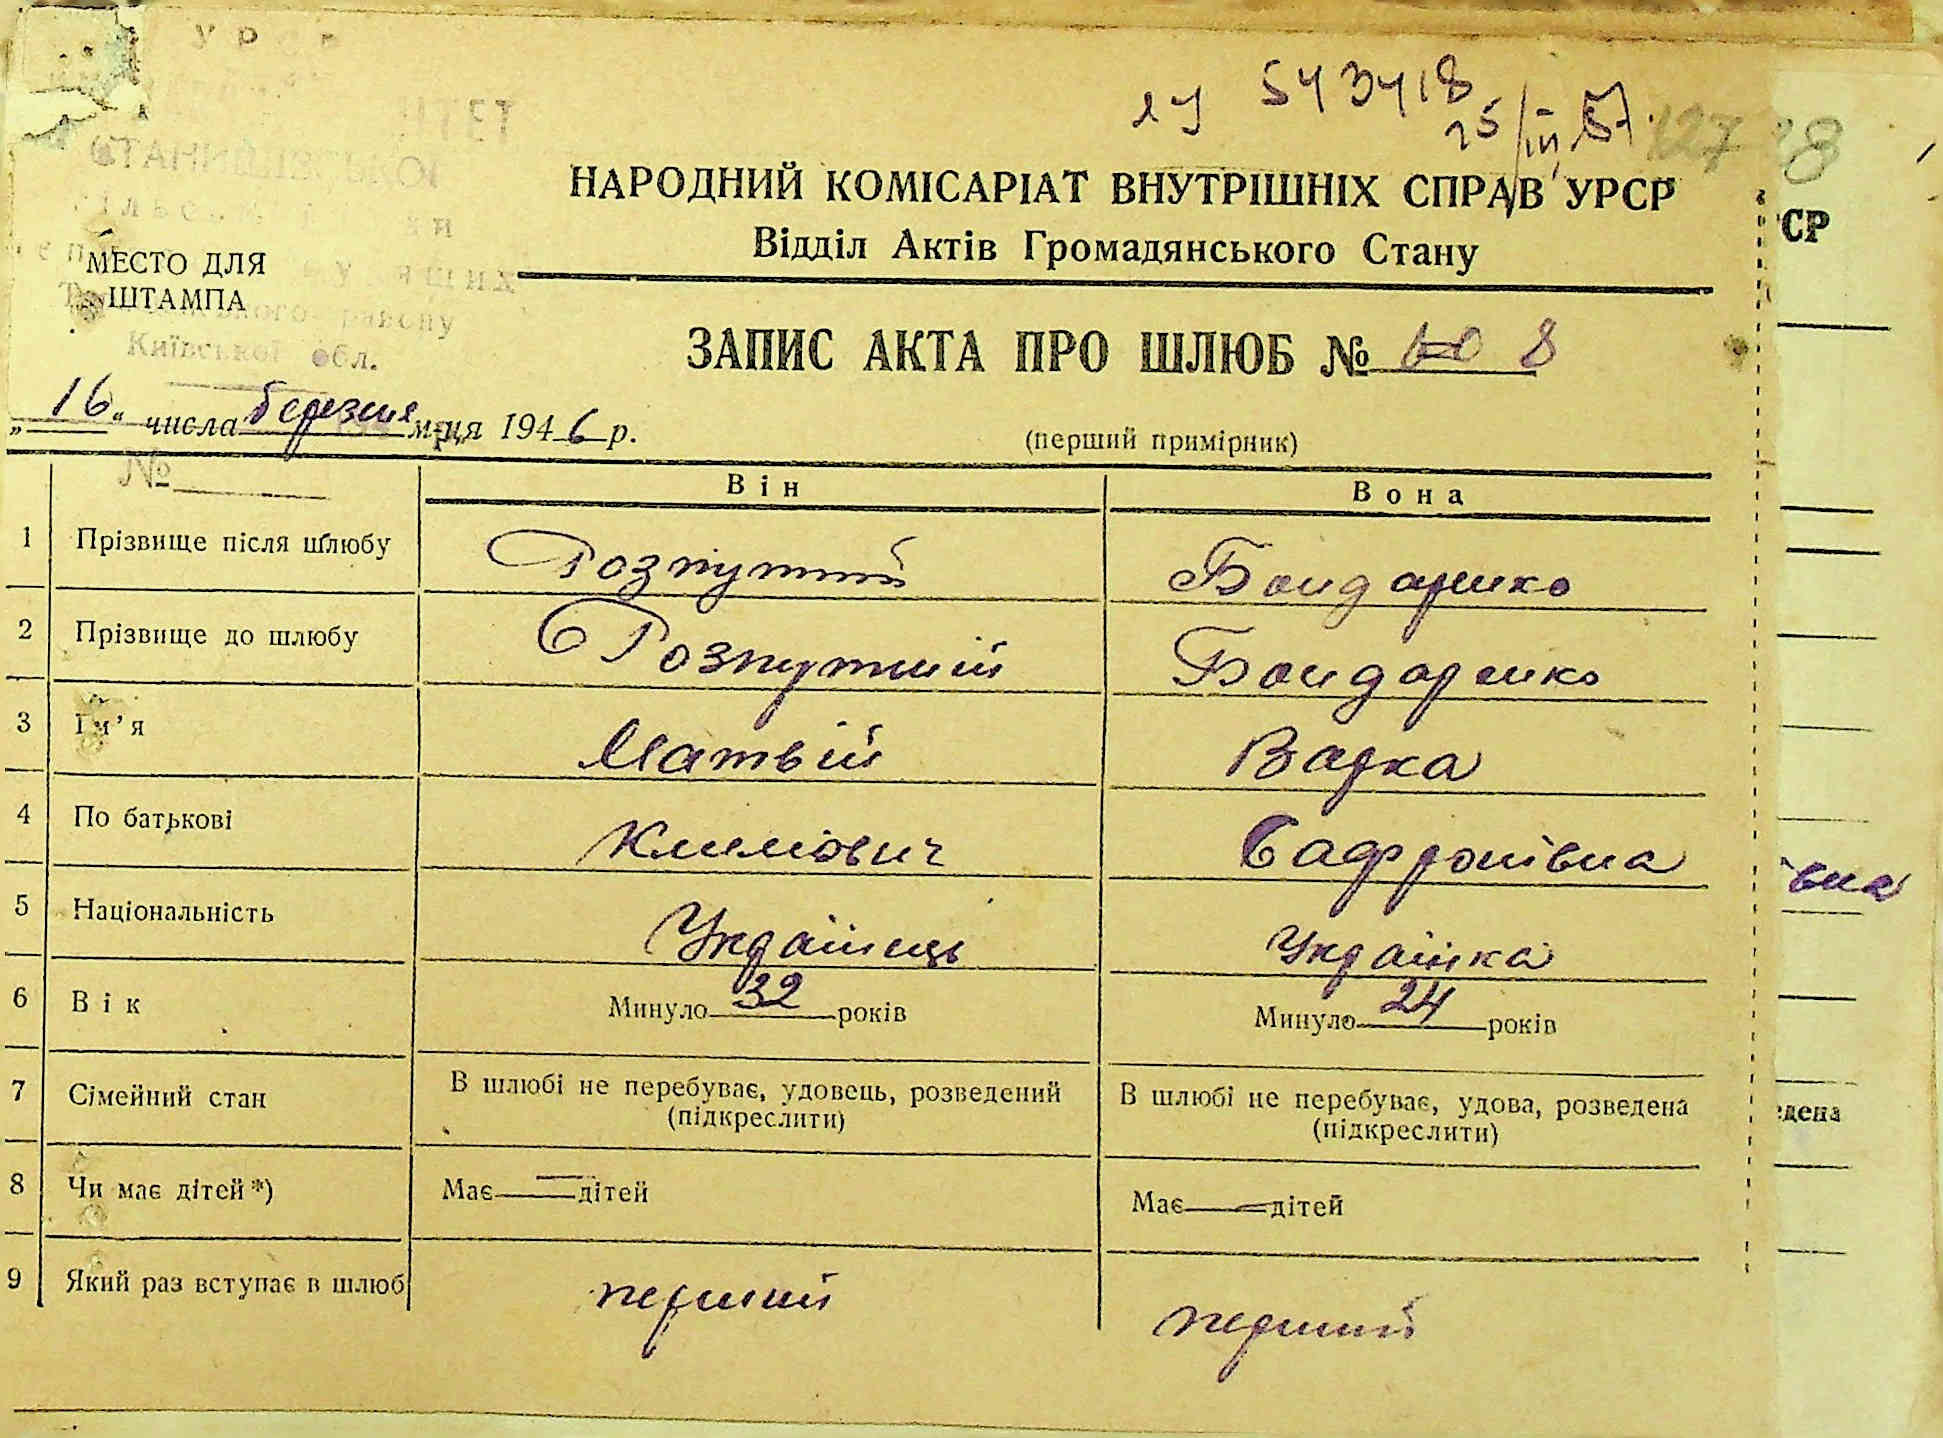 УРСР
СТАНИШІВСЬКОЇ
району
Київської обл.
№
МЕСТО ДЛЯ
ШТАМПА
543418
25/III 57.
НАРОДНИЙ КОМІСАРІАТ ВНУТРІШНІХ СПРАВ УРСР
Відділ Актів Громадянського Стану
ЗАПИС АКТА ПРО ШЛЮБ № 8
„16“ числа березня м-ця 1946 р.
(перший примірник)
Він Вона
1 Прізвище після шлюбу Розпутній Бондаренко
2 Прізвище до шлюбу Розпутній Бондаренко
3 Ім’я Матвій Варка
4 По батькові Климович Сафронівна
5 Національність Українець Українка
6 Вік Минуло 32 років Минуло 24 років
7 Сімейний стан В шлюбі не перебуває, удовець, розведений В шлюбі не перебуває, удова, розведена
(підкреслити) (підкреслити)
8 Чи має дітей*) Має — дітей Має — дітей
9 Який раз вступає в шлюб перший перший
СР
івна
едена